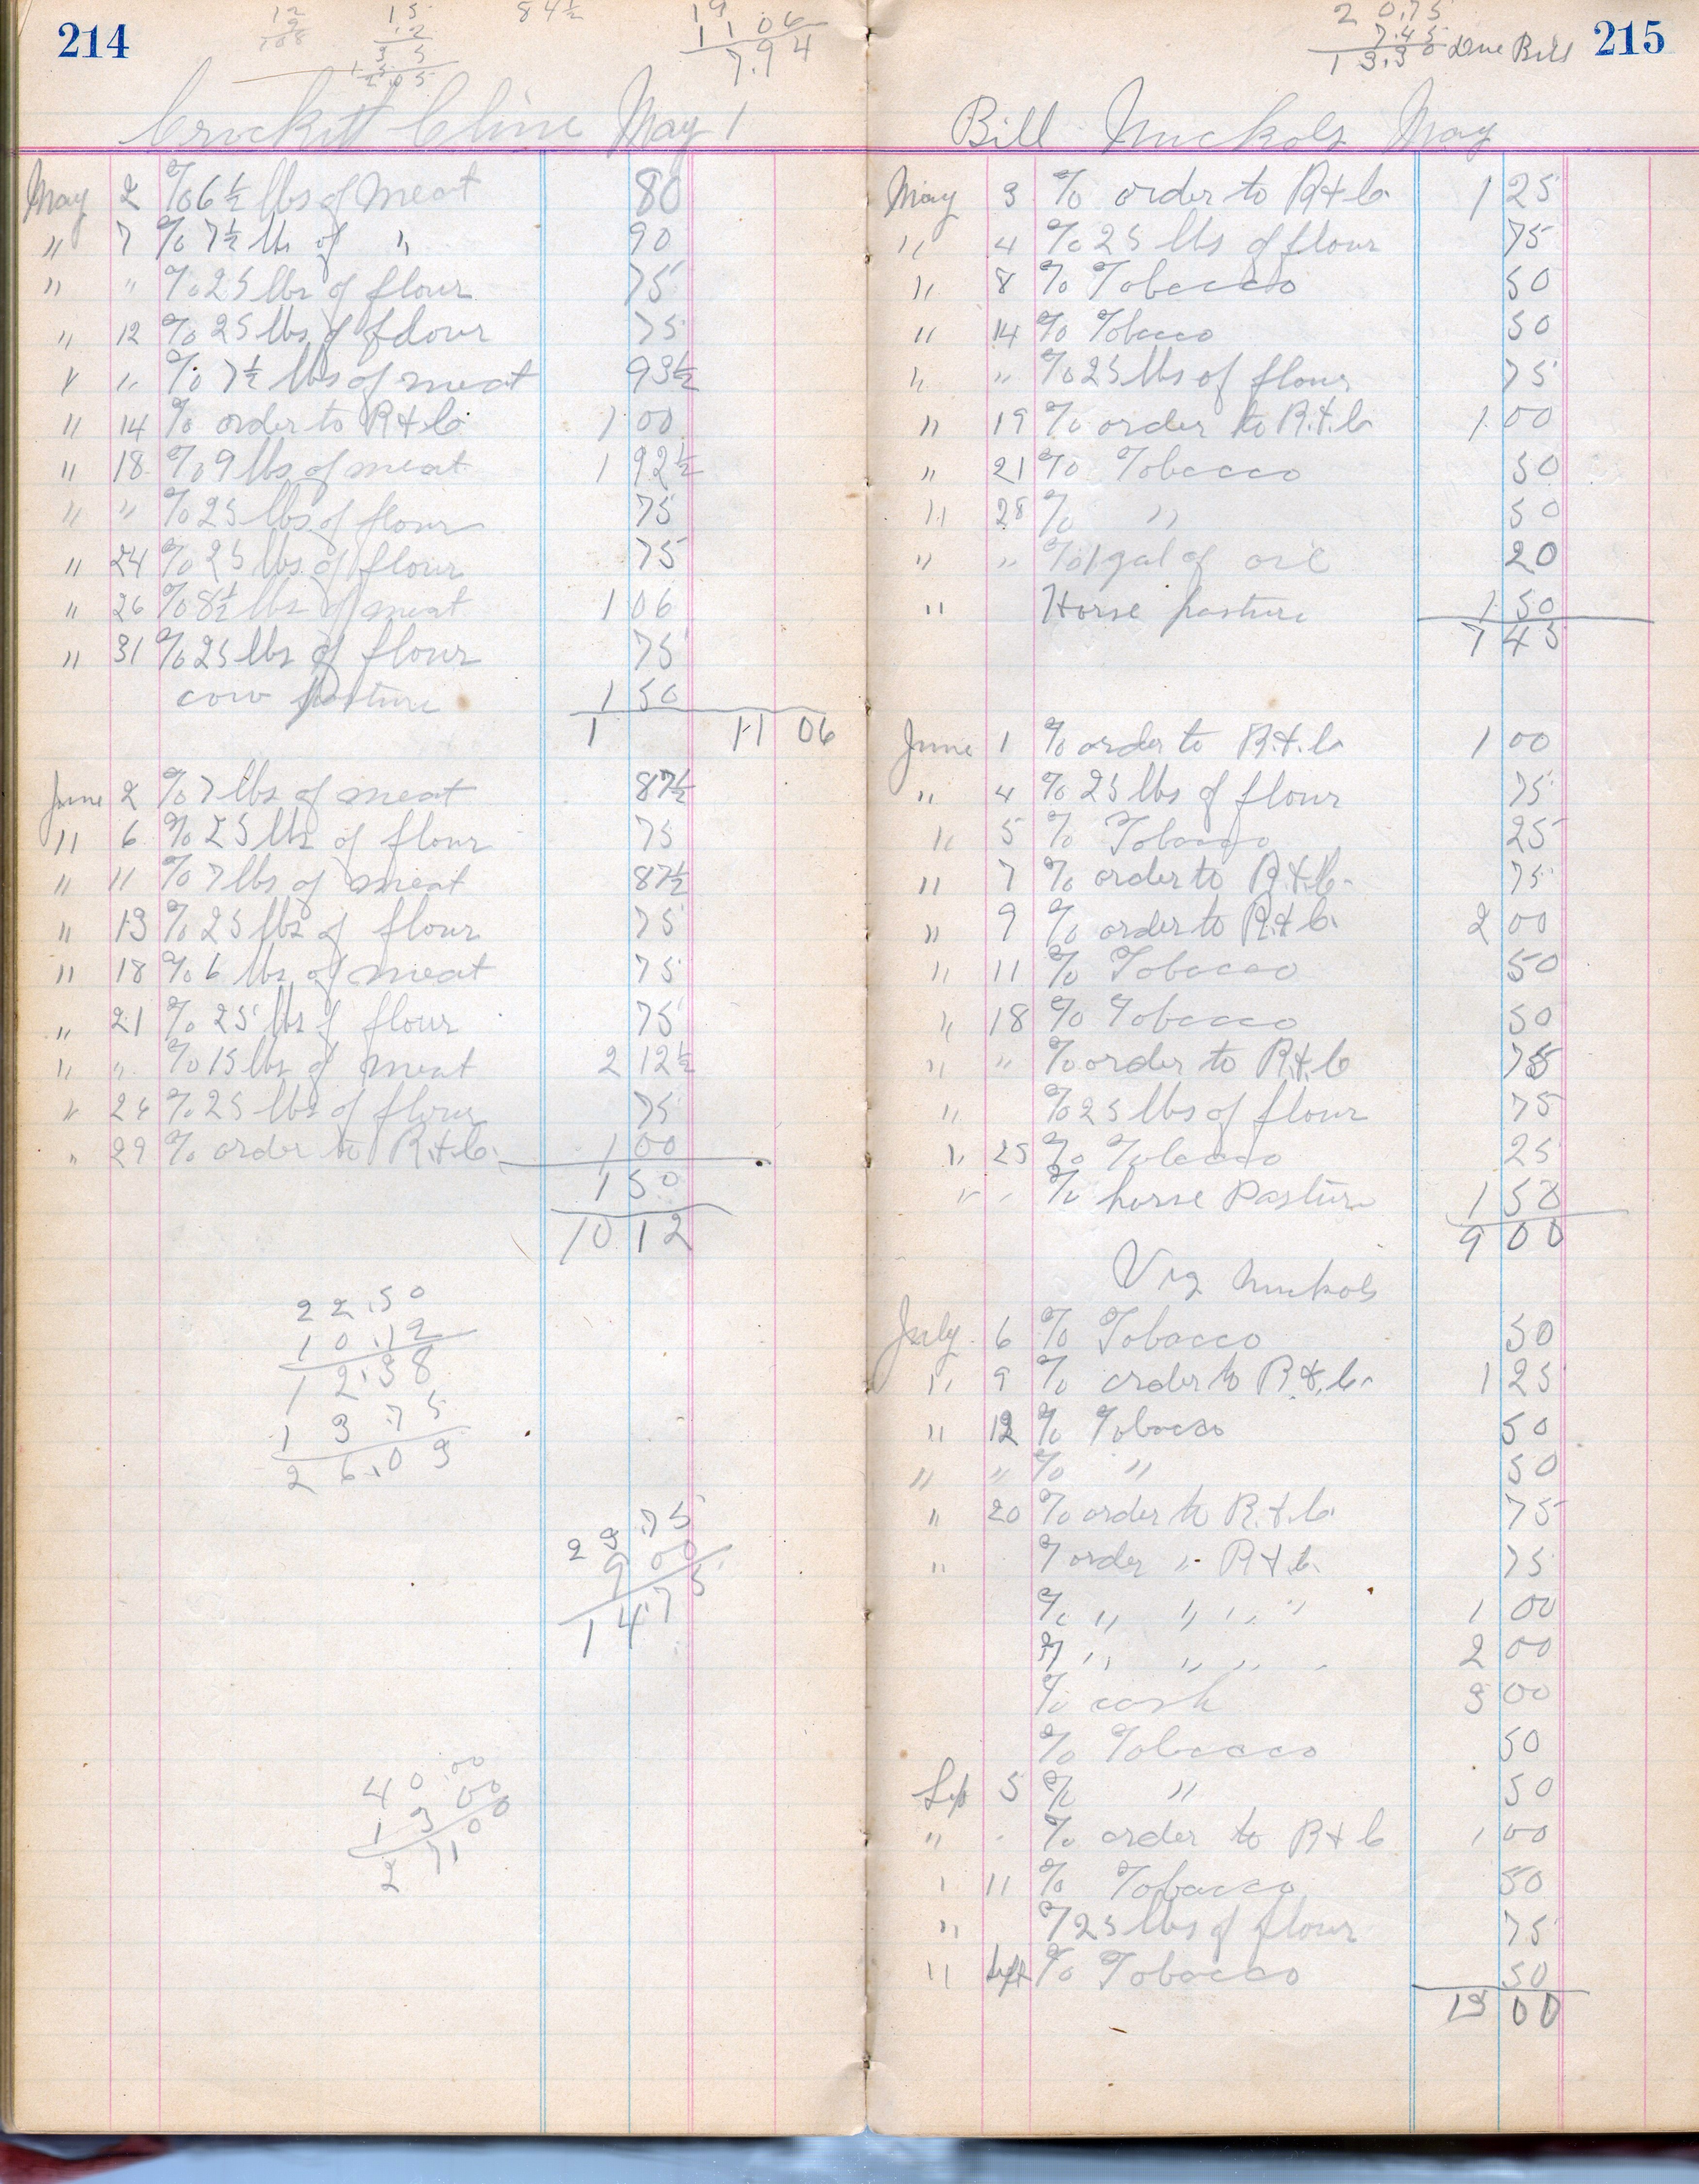 214
12
9
108
15
.12
3 5
84½
19
11 06
7.94
Crockett Cline May 1
May 2 % 6½ lbs of meat 80
" 7 % 7½ lbs of " 90
" " % 25 lbs of flour 75
" 12 % 25 lbs of flour 75
" " % 7½ lbs of meat 93½
" 14 % order to R + C 1 00
" 18 % 9 lbs of meat 1 92½
" " % 25 lbs of flour 75
" 24 % 25 lbs of flour 75
" 26 % 8½ lbs of meat 1 06
" 31 % 25 lbs of flour 75
cow pasture 1 50
1 11 06
June 2 % 7 lbs of meat 87½
" 6 % 25 lbs of flour 75
" 11 % 7 lbs of meat 87½
" 13 % 25 lbs of flour 75
" 18 % 6 lbs of meat 75
" 21 % 25 lbs of flour 75
" " % 15 lbs of meat 2 12½
" 26 % 25 lbs of flour 75
" 29 % order to R.+C. 1 00
1 50
10 12
22.50
10.12
12.38
13.75
26.03
23.75
9 00
14.75
40.00
13 00
27 00
215
20.75
7.45
13.30 due Bill
Bill Nuckols May
May 3 % order to R+C 1 25
" 4 % 25 lbs of flour 75
" 8 % Tobacco 50
" 14 % Tobacco 50
" " % 25 lbs of flour 75
" 19 % order to R.+.C 1 00
" 21 % Tobacco 50
" 28 % " 50
" " % 1 gal of oil 20
" Horse pasture 1 50
7 45
June 1 % order to R.+.C 1 00
" 4 % 25 lbs of flour 75
" 5 % Tobacco 25
" 7 % order to R.+.C. 75
" 9 % order to R.+C. 2 00
" 11 % Tobacco 50
" 18 % Tobacco 50
" " % order to R.+.C 75
" % 25 lbs of flour 75
" 25 % Tobacco 25
" " % horse Pasture 1 50
9 00
Virg Nuckols
July 6 % Tobacco 50
" 9 % order to R.+.C. 1 25
" 12 % Tobacco 50
" " % " 50
" 20 % order to R.+.C. 75
" % order " R + C. 75
% " " " " 1 00
% " " " " 2 00
% cash 3 00
% Tobacco 50
Sep 5 % " 50
" " % order to R + C 1 00
" 11 % Tobacco 50
" % 25 lbs of flour 75
" Sept % Tobacco 50
13 00